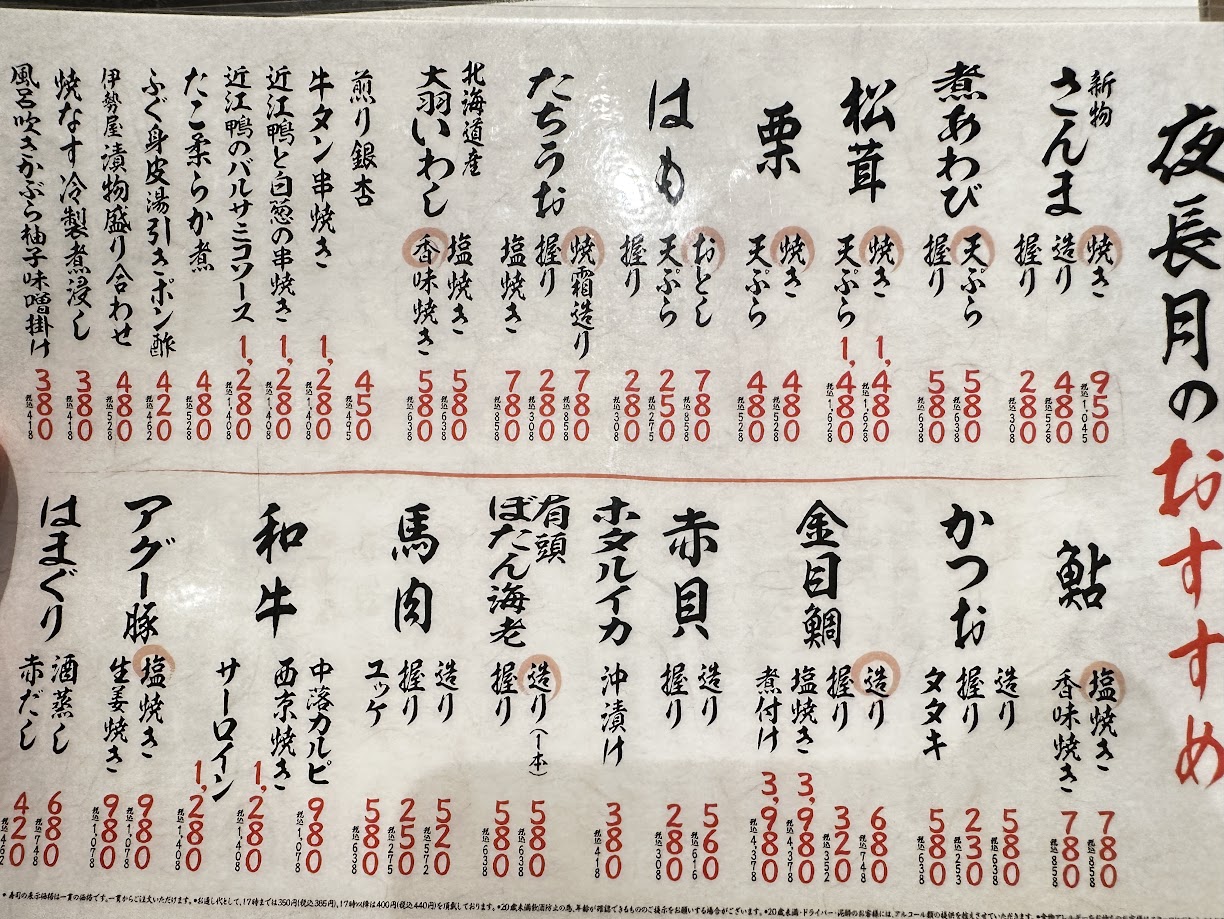 夜長月のおすすめ
新物
さんま
焼き 950 税込1,045
造り 480 税込528
握り 280 税込308
煮あわび
天ぷら 580 税込638
握り 580 税込638
松茸
焼き 1,480 税込1,628
天ぷら 1,480 税込1,628
栗
焼き 480 税込528
天ぷら 480 税込528
はも
おとし 780 税込858
天ぷら 250 税込275
握り 280 税込308
たちうお
焼霜造り 780 税込858
握り 280 税込308
塩焼き 780 税込858
北海道産
大羽いわし
塩焼き 580 税込638
香味焼き 580 税込638
煎り銀杏 450 税込495
牛タン串焼き 1,280 税込1,408
近江鴨と白葱の串焼き 1,280 税込1,408
近江鴨のバルサミコソース 1,280 税込1,408
たこ柔らか煮 480 税込528
ふぐ身皮湯引きポン酢 420 税込462
伊勢屋漬物盛り合わせ 480 税込528
焼なす冷製煮浸し 380 税込418
風呂吹きかぶら柚子味噌掛け 380 税込418
鮎
塩焼き 780 税込858
香味焼き 780 税込858
かつお
造り 580 税込638
握り 230 税込253
タタキ 580 税込638
金目鯛
造り 680 税込748
握り 320 税込352
塩焼き 3,980 税込4,378
煮付け 3,980 税込4,378
赤貝
造り 560 税込616
握り 280 税込308
ホタルイカ
沖漬け 380 税込418
有頭
ぼたん海老
造り(1本) 580 税込638
握り 580 税込638
馬肉
造り 520 税込572
握り 250 税込275
ユッケ 580 税込638
和牛
中落カルビ 980 税込1,078
西京焼き 1,280 税込1,408
サーロイン 1,280 税込1,408
アグー豚
塩焼き 980 税込1,078
生姜焼き 980 税込1,078
はまぐり
酒蒸し 680 税込748
赤だし 420 税込462
*寿司の表示価格は一貫の価格です。一貫からご注文いただけます。*お通し代として、17時までは350円(税込385円)、17時以降は400円(税込440円)を頂戴しております。*20歳未満飲酒防止の為、年齢が確認できるもののご提示をお願いする場合がございます。*20歳未満・ドライバー・泥酔のお客様には、アルコール類の提供を控えさせていただきます。